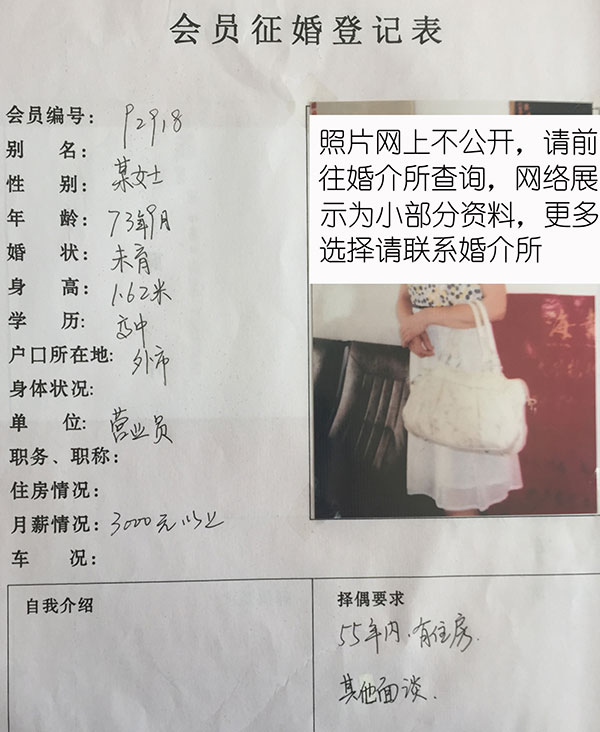 会员征婚登记表
会员编号: P2918
别 名:
性 别: 某女士
年 龄: 73年9月
婚 状: 未育
身 高: 1.62米
学 历: 高中
户口所在地: 外市
身体状况:
单 位: 营业员
职务、职称:
住房情况:
月薪情况: 3000元以上
车 况:
照片网上不公开，请前
往婚介所查询，网络展
示为小部分资料，更多
选择请联系婚介所
自我介绍
择偶要求
55年内.有住房.
其他面谈.